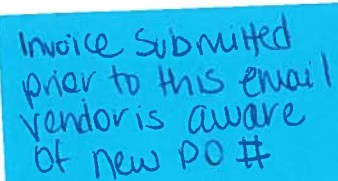 Invoice Submitted
prior to this email
vendor is aware
of new PO #